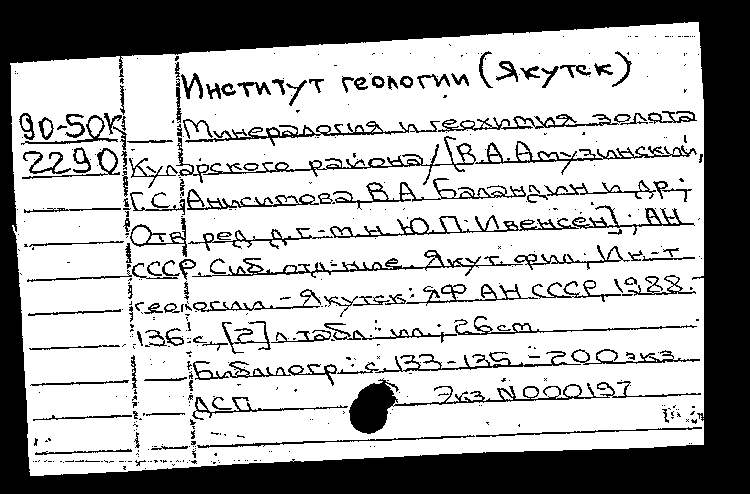 Институт геологии (Якутск)
90-50К Минералогия и геохимия золота
2290 Куларского района / [В.А. Амузинский,
Г.С. Анисимова, В.А. Баландин и др.;
Отв. ред. д.г.-м.н. Ю.П. Ивенсен]; АН
СССР. Сиб. отд-ние. Якут. фил.; Ин-т
геологии. - Якутск: ЯФ АН СССР, 1988. -
136 с., [2] л. табл.: ил.; 26 см.
Библиогр.: с. 133-135. - 200 экз.
ДСП. Экз. N 000197